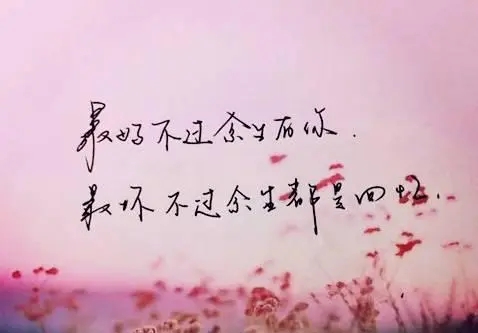 最好不过余生有你.
最坏不过余生都是回忆.